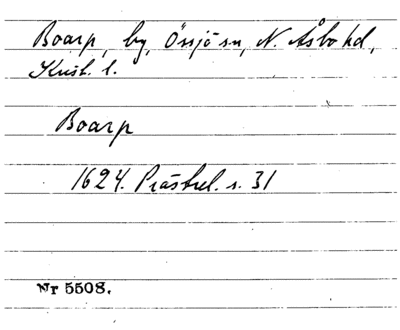 Boarp, by, Össjö sn, N. Åsbo hd,
Krist. l.
Boarp
1624. Prästrel. s. 31
Nr 5508.